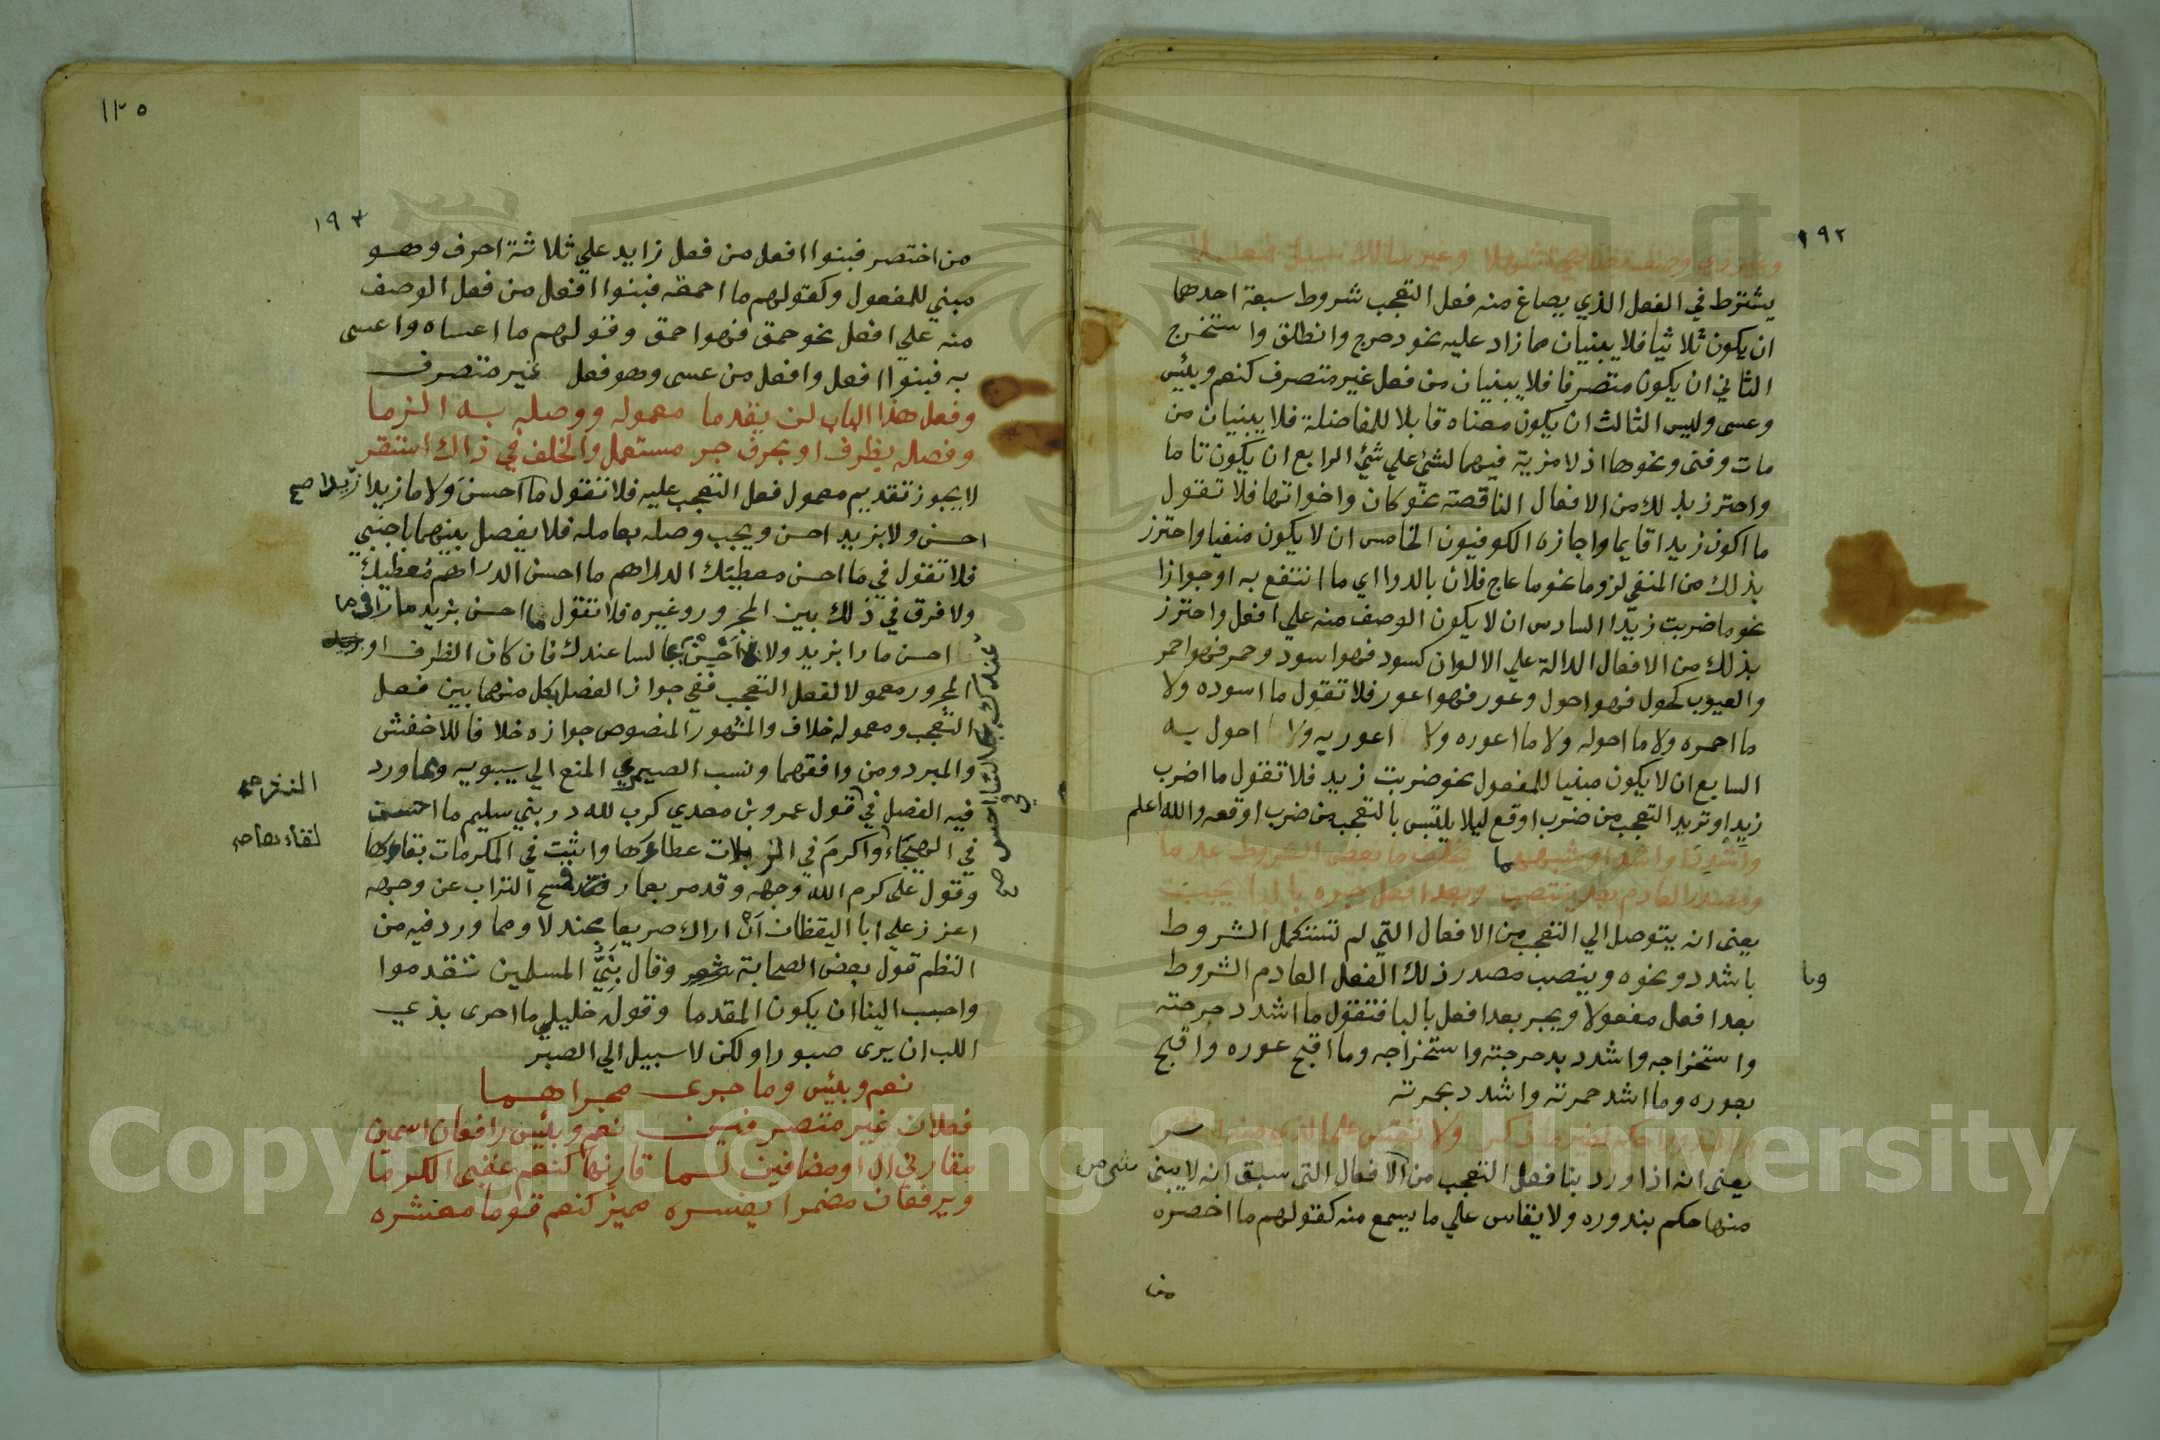 ١٩٢
وغير ذي وصف يضاهي اشهلا وغير سالك سبيل فعلا
يشترط في الفعل الذي يصاغ منه فعل التعجب شروط سبعة احدهما
ان يكون ثلاثيا فلا يبنيان مما زاد عليه نحو دحرج وانطلق واستخرج
الثاني ان يكون متصرفا فلا يبنيان من فعل غير متصرف كنعم وبئس
وعسى وليس الثالث ان يكون معناه قابلا للمفاضلة فلا يبنيان من
مات وفنى ونحوها اذ لا مزية فيهما لشئ علي شئ الرابع ان يكون تاما
واحترز بذلك من الافعال الناقصة نحو كان واخواتها فلا تقول
ما اكون زيدا قايما واجازه الكوفيون الخامس ان لا يكون منفيا واحترز
بذلك من المنفي لزوما نحو ما عاج فلان بالدوا اي ما انتفع به او جوازا
نحو ما ضربت زيدا السادس ان لا يكون الوصف منه علي افعل واحترز
بذلك من الافعال الدالة علي الالوان كسود فهو اسود وحمر فهو احمر
والعيوب كحول فهو احول وعور فهو اعور فلا تقول ما اسوده ولا
ما احمره ولا ما احوله ولا ما اعوره ولا اعور به ولا احول به
السابع ان لا يكون مبنيا للمفعول نحو ضربت زيد فلا تقول ما اضرب
زيد او تريد التعجب من ضرب اوقع ليلا يلتبس بالتعجب من ضرب اوقعه والله اعلم
واشدد او اشد او شبههما يخلف ما بعض الشروط عدما
ومصدر العادم بعد ينتصب وبعد افعل جره بالبا يجب
يعني انه يتوصل الي التعجب من الافعال التي لم تستكمل الشروط
باشدد ونحوه وينصب مصدر ذلك الفعل العادم الشروط
وبا
بعد افعل مفعولا ويجر بعد افعل بالبا فتقول ما اشد دحرجته
واستخراجه واشدد بدحرجته واستخراجه وما اقبح عوره واقبح
بعوره وما اشد حمرته واشدد بحمرته
وبالندور احكم لغير ما ذكر ولا تقس علي الذي منه اثر
يعني انه اذا ورد بنا فعل التعجب من الافعال التي سبق انه لا يبنى شي من
منها حكم بندوره ولا يقاس علي ما سمع منه كقولهم ما اخصره
من
١٢٥
١٩٣
من اختصر فبنوا افعل من فعل زايد علي ثلاثة احرف وهو
مبني للمفعول وكقولهم ما احمقه فبنوا افعل من فعل الوصف
منه علي افعل نحو حمق فهو احمق وقولهم ما اعساه واعسى
به فبنوا افعل وافعل من عسى وهو فعل غير متصرف
وفعل هذا الباب لن يقدما معموله ووصله به الزما
وفصله بظرف او بحرف جر مستعمل والخلف في ذاك استقر
لا يجوز تقديم معمول فعل التعجب عليه فلا تقول ما احسن ولا ما زيدا زيدا صح
احسن ولا بزيد احسن ويجب وصله بعامله فلا يفصل بينهما باجنبي
فلا تقول في ما احسن معطيك الدراهم ما احسن الدراهم معطيك
ولا فرق في ذلك بين المجرور وغيره فلا تقول ما احسن بزيد مارا في ما
احسن مارا بزيد ولا احسن جالسا عندك فان كان الظرف او
المجرور معمولا لفعل التعجب ففي جواز الفصل بكل منهما بين فعل
التعجب ومعموله خلاف والمشهور المنصوص جوازه خلافا للاخفش
والمبرد ومن وافقهما ونسب الصيمري المنع الي سيبويه ومما ورد
فيه الفصل في النثر صح قول عمرو بن معدي كرب لله در بني سليم ما احسن
في الهيجاء لقاءها صح واكرم في اللزبات عطاءها واثبت في المكرمات بقاءها
وقول على كرم الله وجهه وقد مر بعمار فمسح التراب عن وجهه
اعزز علي ابا اليقظان ان اراك صريعا مجندلا ومما ورد فيه من
النظم قول بعض الصحابة شعر وقال بني المسلمين تقدموا
واحبب الينا ان يكون المقدما وقوله خليلي ما احرى بذي
اللب ان يرى صبورا ولكن لا سبيل الي الصبر
نعم وبئس وما جرى مجراهما
فعلان غير متصرفين نعم وبئس رافعان اسمين
مقارني ال او مضافين لما قارنها كنعم عقبى الكرما
ويرفعان مضمرا يفسره مميز كنعم قوما معشره